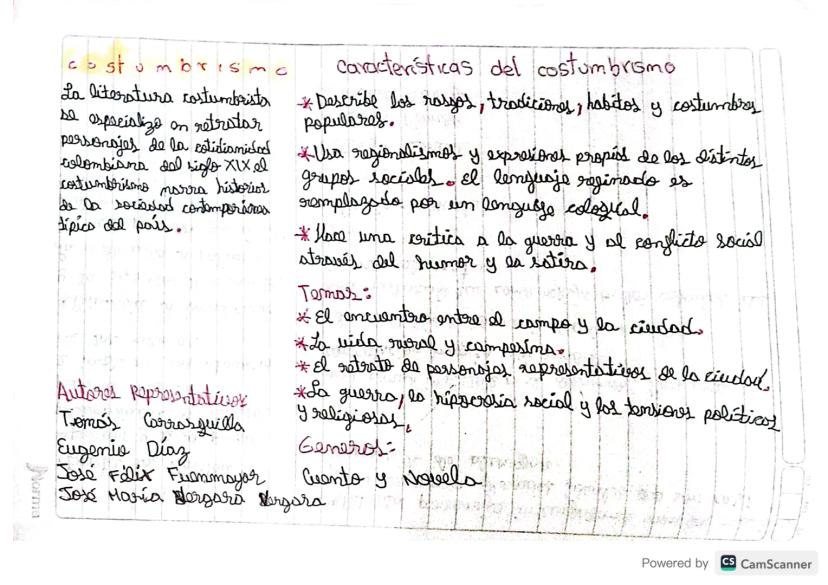 costumbrismo
La literatura costumbrista
se especializo en retratar
personajes de la cotidianidad
colombiana del siglo XIX el
costumbrismo narra historias
de la sociedad contemporánea
típica del país.
Autores Representativos
Tomás Carrasquilla
Eugenio Díaz
José Félix Fuenmayor
José María Vergara Vergara
características del costumbrismo
* Describe los rasgos, tradiciones, habitos y costumbres
populares.
* Usa regionalismos y expresiones propias de los distintos
grupos sociales. el lenguaje reginado es
remplazado por un lenguaje cological.
* Hace una crítica a la guerra y al conflicto social
através del humor y la satira.
Temas:
* El encuentro entre el campo y la ciudad.
* La vida rural y campesina.
* el retrato de personajes representativos de la ciudad.
* La guerra, la hipocresía social y las tensiones políticas
y religiosas.
Generos:
Cuento y Novela
Norma
Powered by CS CamScanner